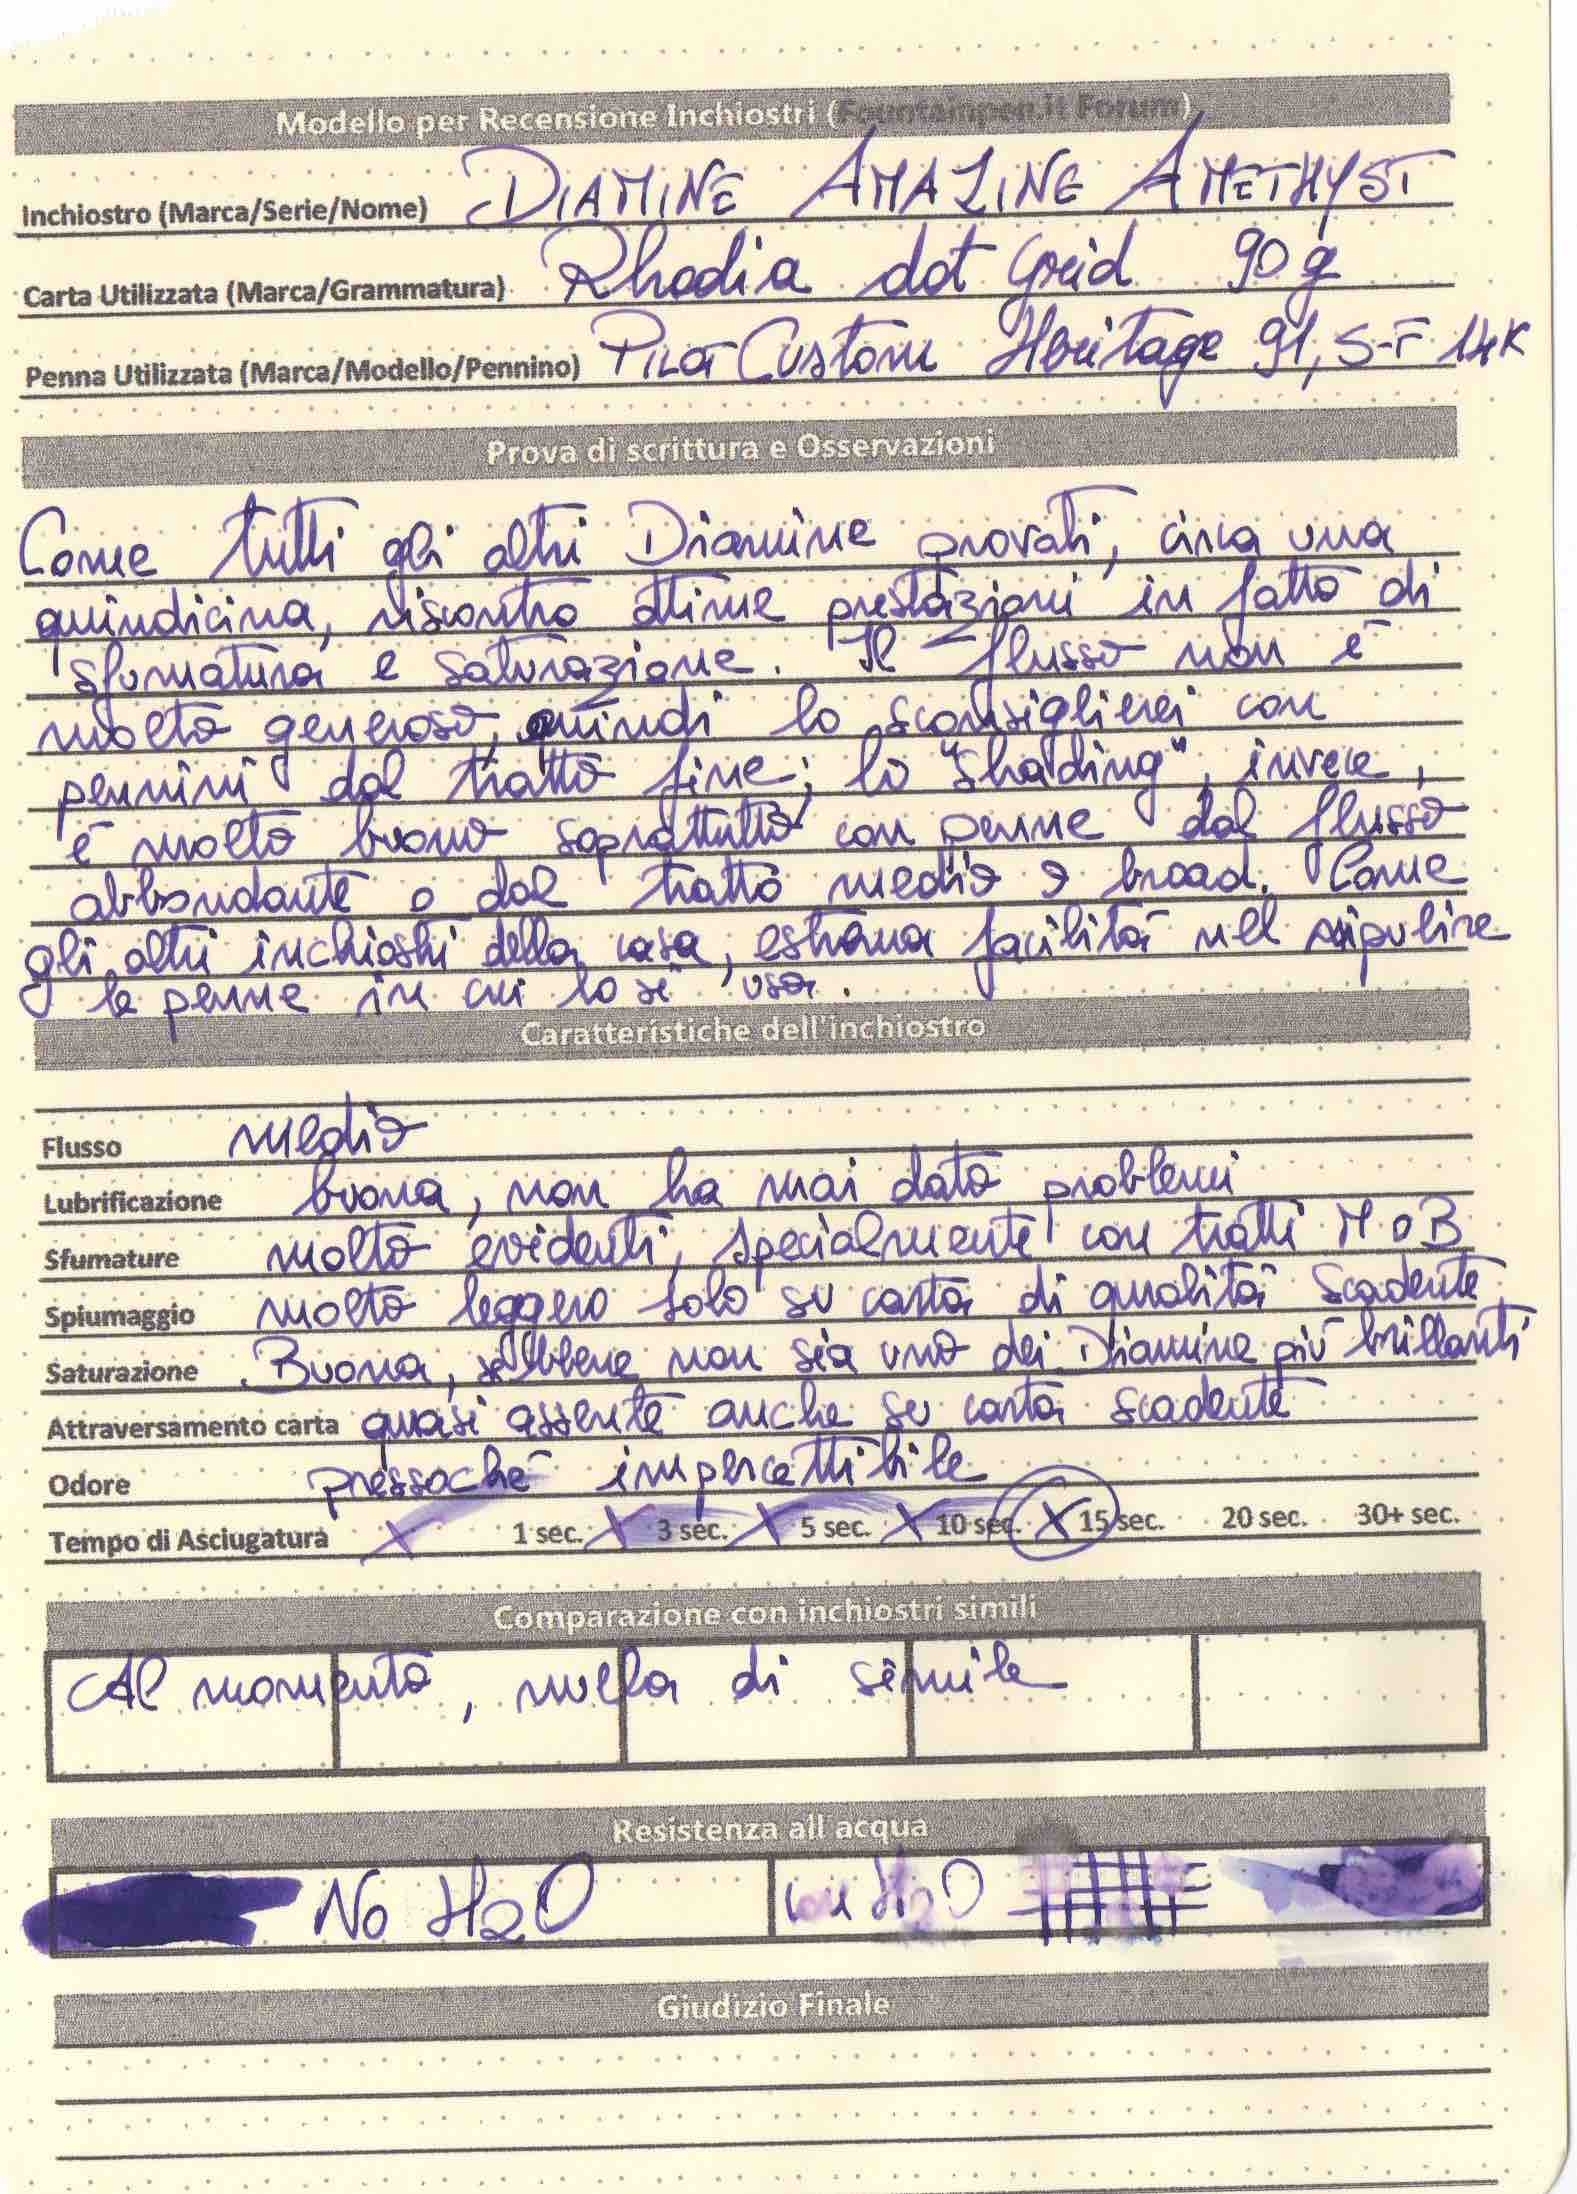 Modello per Recensione Inchiostri (Fountainpen.it Forum)
Inchiostro (Marca/Serie/Nome) DIAMINE AMAZINE AMETHYST
Carta Utilizzata (Marca/Grammatura) Rhodia dot Grid 90 g
Penna Utilizzata (Marca/Modello/Pennino) PILOT Custom Heritage 91, S-F 14K
Prova di scrittura e Osservazioni
Come tutti gli altri Diamine provati, circa una
quindicina, riscontro ottime prestazioni in fatto di
sfumatura e saturazione. Il flusso non è
molto generoso, quindi lo sconsiglierei con
pennini dal tratto fine; lo "shading", invece,
è molto buono soprattutto con penne dal flusso
abbondante o dal tratto medio o broad. Come
gli altri inchiostri della casa, estrema facilità nel ripulire
le penne in cui lo si usa.
Caratteristiche dell'inchiostro
Flusso medio
Lubrificazione buona, non ha mai dato problemi
Sfumature molto evidenti, specialmente con tratti M o B
Spiumaggio molto leggero solo su carta di qualità scadente
Saturazione Buona, sebbene non sia uno dei Diamine più brillanti
Attraversamento carta quasi assente anche su carta scadente
Odore pressoché impercettibile
Tempo di Asciugatura X 1 sec. X 3 sec. X 5 sec. X 10 sec. X 15 sec. 20 sec. 30+ sec.
Comparazione con inchiostri simili
Al momento, nulla di simile
Resistenza all'acqua
No H2O con H2O
Giudizio Finale